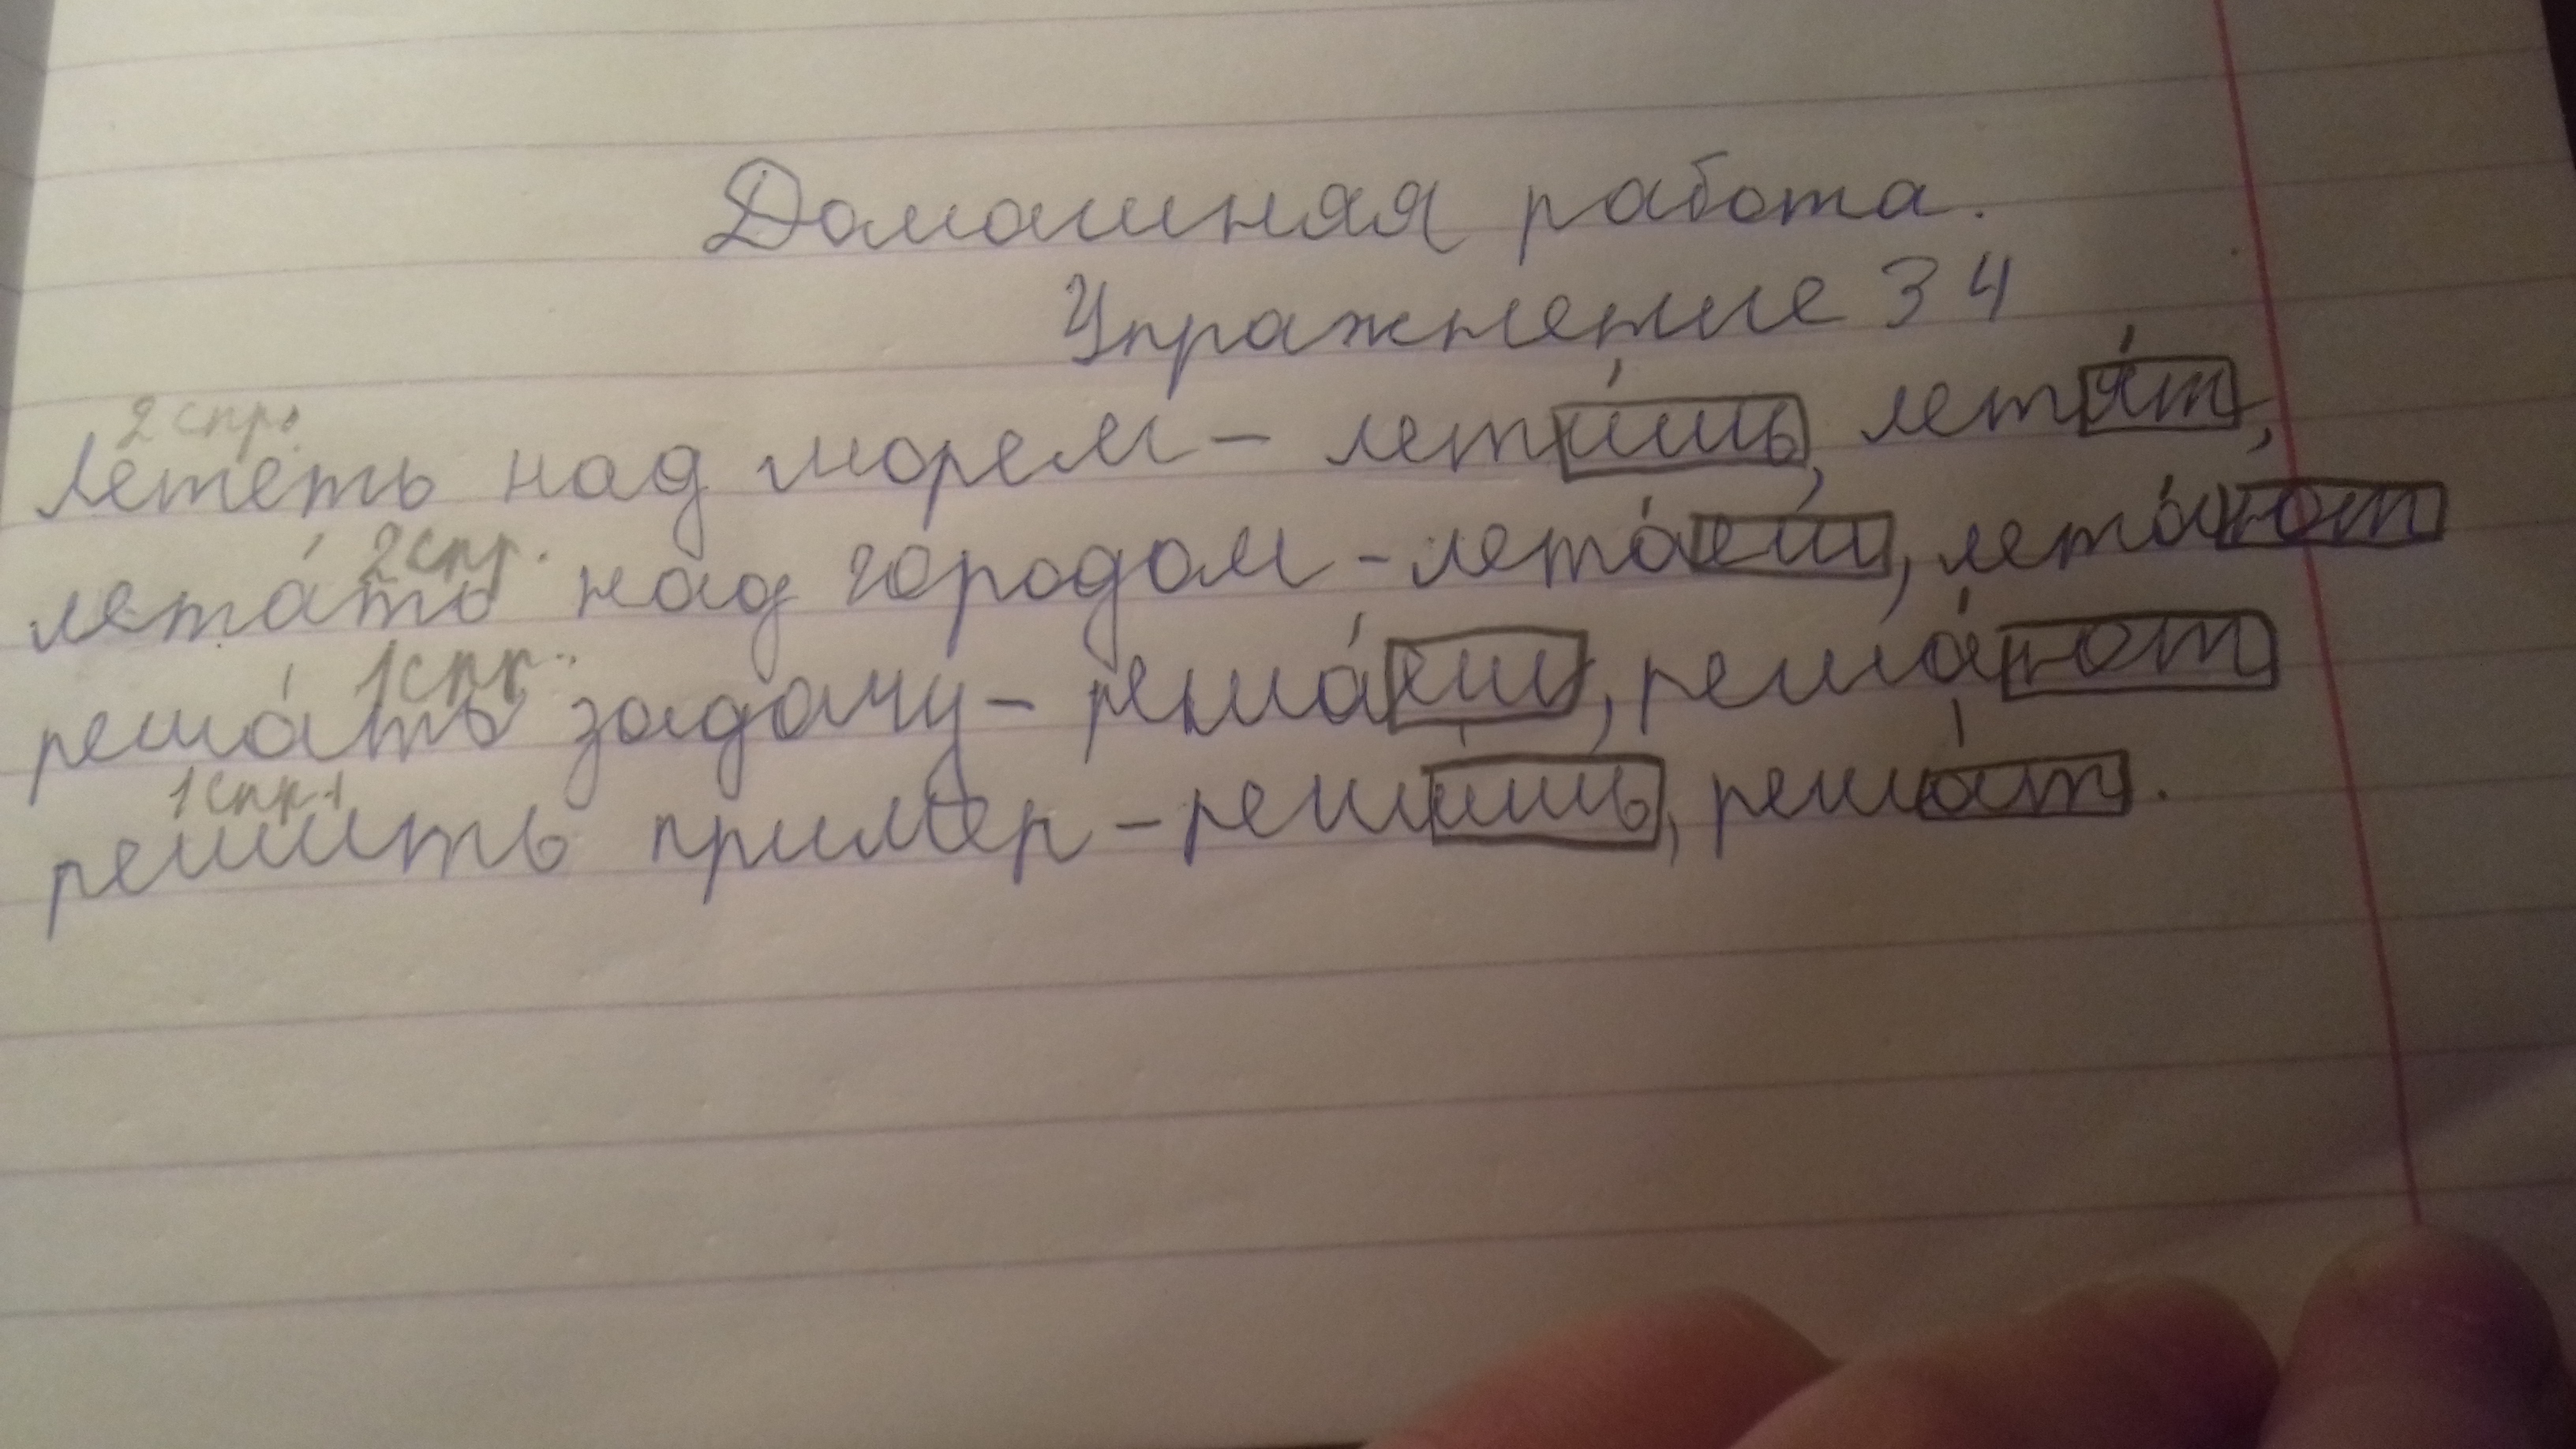 Домашняя работа.
Упражнение 34
2 спр.
Лететь над морем – лети́шь, летя́т,
2 спр.
лета́ть над городом – лета́еш, лета́ют
1 спр.
реша́ть задачу – реша́еш, реша́ют
1 спр.
решить пример – реши́шь, реша́т.